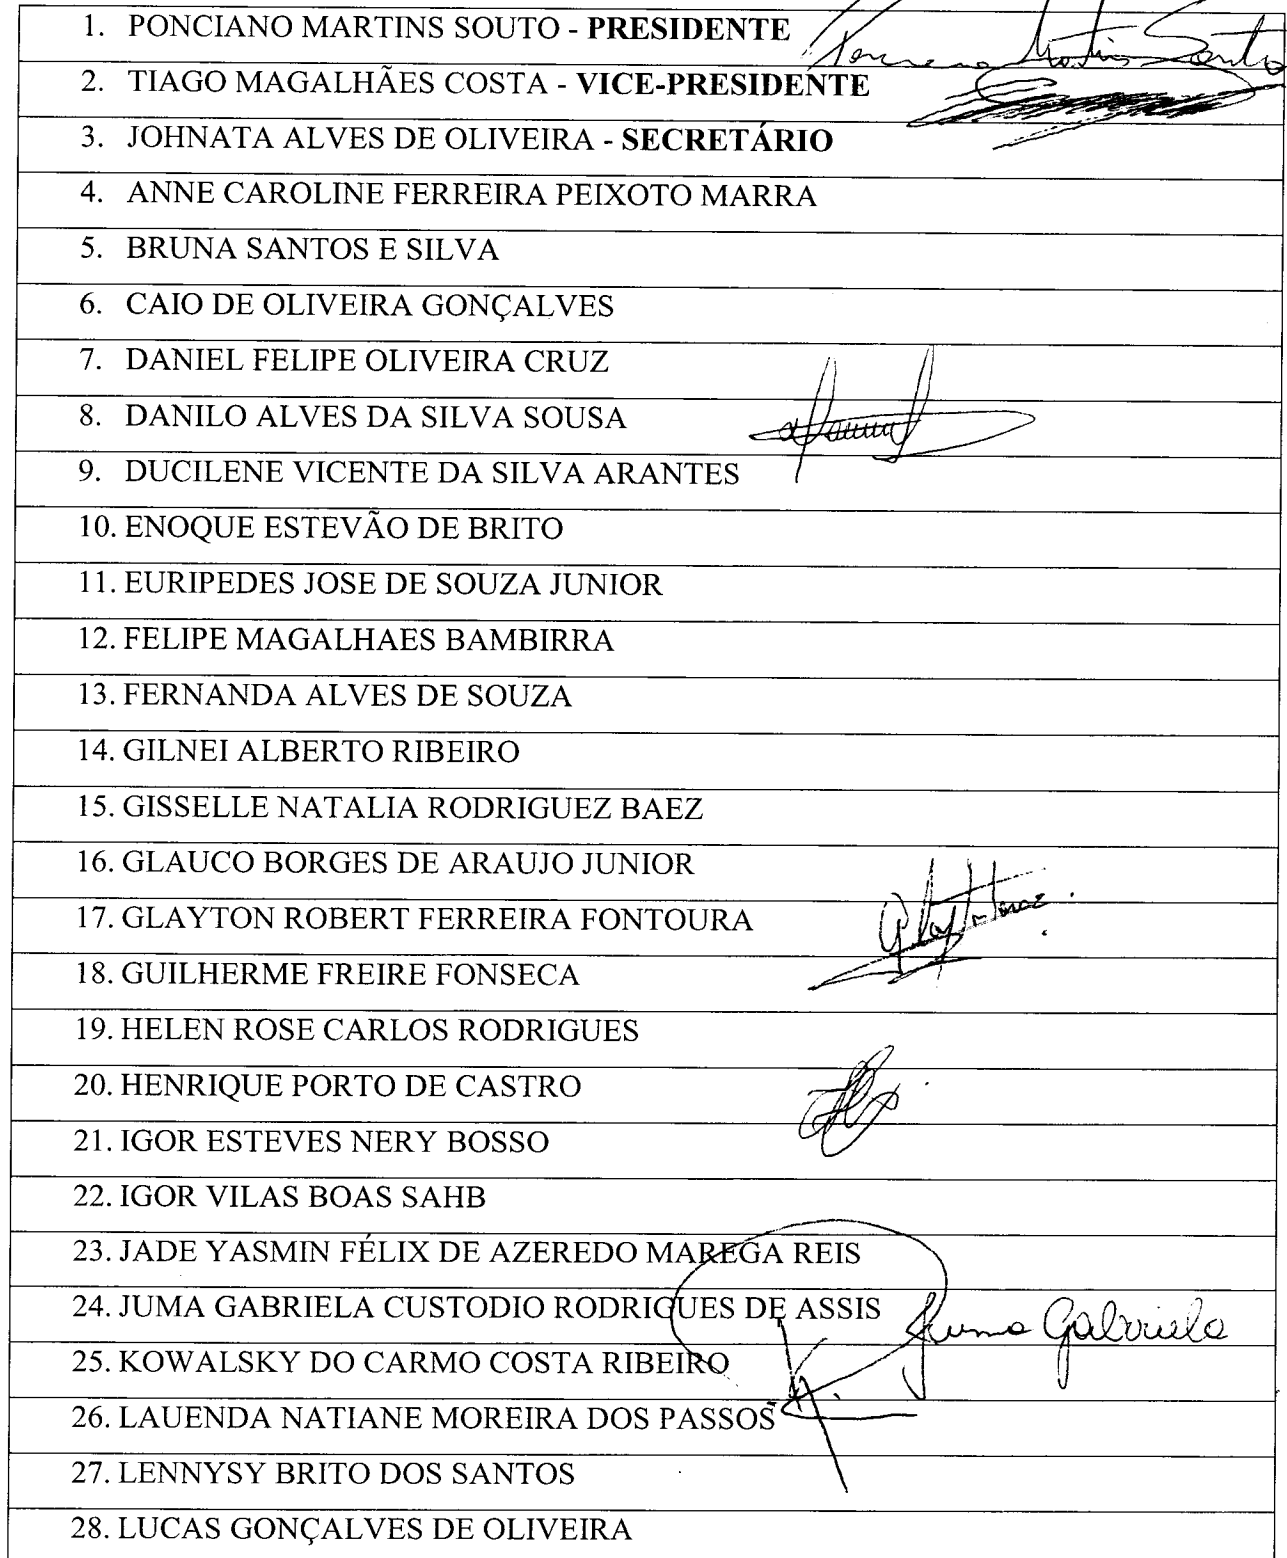 1. PONCIANO MARTINS SOUTO - PRESIDENTE
Martins Souto
2. TIAGO MAGALHÃES COSTA - VICE-PRESIDENTE
3. JOHNATA ALVES DE OLIVEIRA - SECRETÁRIO
4. ANNE CAROLINE FERREIRA PEIXOTO MARRA
5. BRUNA SANTOS E SILVA
6. CAIO DE OLIVEIRA GONÇALVES
7. DANIEL FELIPE OLIVEIRA CRUZ
8. DANILO ALVES DA SILVA SOUSA
9. DUCILENE VICENTE DA SILVA ARANTES
10. ENOQUE ESTEVÃO DE BRITO
11. EURIPEDES JOSE DE SOUZA JUNIOR
12. FELIPE MAGALHAES BAMBIRRA
13. FERNANDA ALVES DE SOUZA
14. GILNEI ALBERTO RIBEIRO
15. GISSELLE NATALIA RODRIGUEZ BAEZ
16. GLAUCO BORGES DE ARAUJO JUNIOR
17. GLAYTON ROBERT FERREIRA FONTOURA
18. GUILHERME FREIRE FONSECA
19. HELEN ROSE CARLOS RODRIGUES
20. HENRIQUE PORTO DE CASTRO
21. IGOR ESTEVES NERY BOSSO
22. IGOR VILAS BOAS SAHB
23. JADE YASMIN FÉLIX DE AZEREDO MAREGA REIS
24. JUMA GABRIELA CUSTODIO RODRIGUES DE ASSIS
Juma Gabriela
25. KOWALSKY DO CARMO COSTA RIBEIRO
26. LAUENDA NATIANE MOREIRA DOS PASSOS
27. LENNYSY BRITO DOS SANTOS
28. LUCAS GONÇALVES DE OLIVEIRA